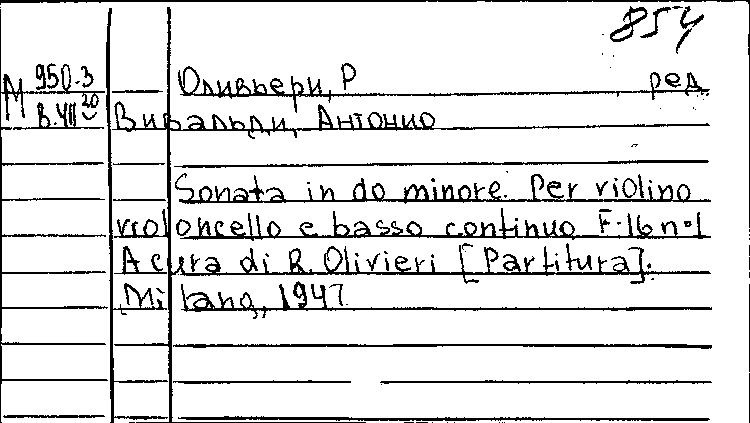 854
М 950-3
Оливьери, Р ред
В.VII 20
Вивальди, Антонио
Sonata in do minore. Per violino
violoncello e basso continuo F.16 n=1
A cura di R. Olivieri [Partitura].
Milano, 1947